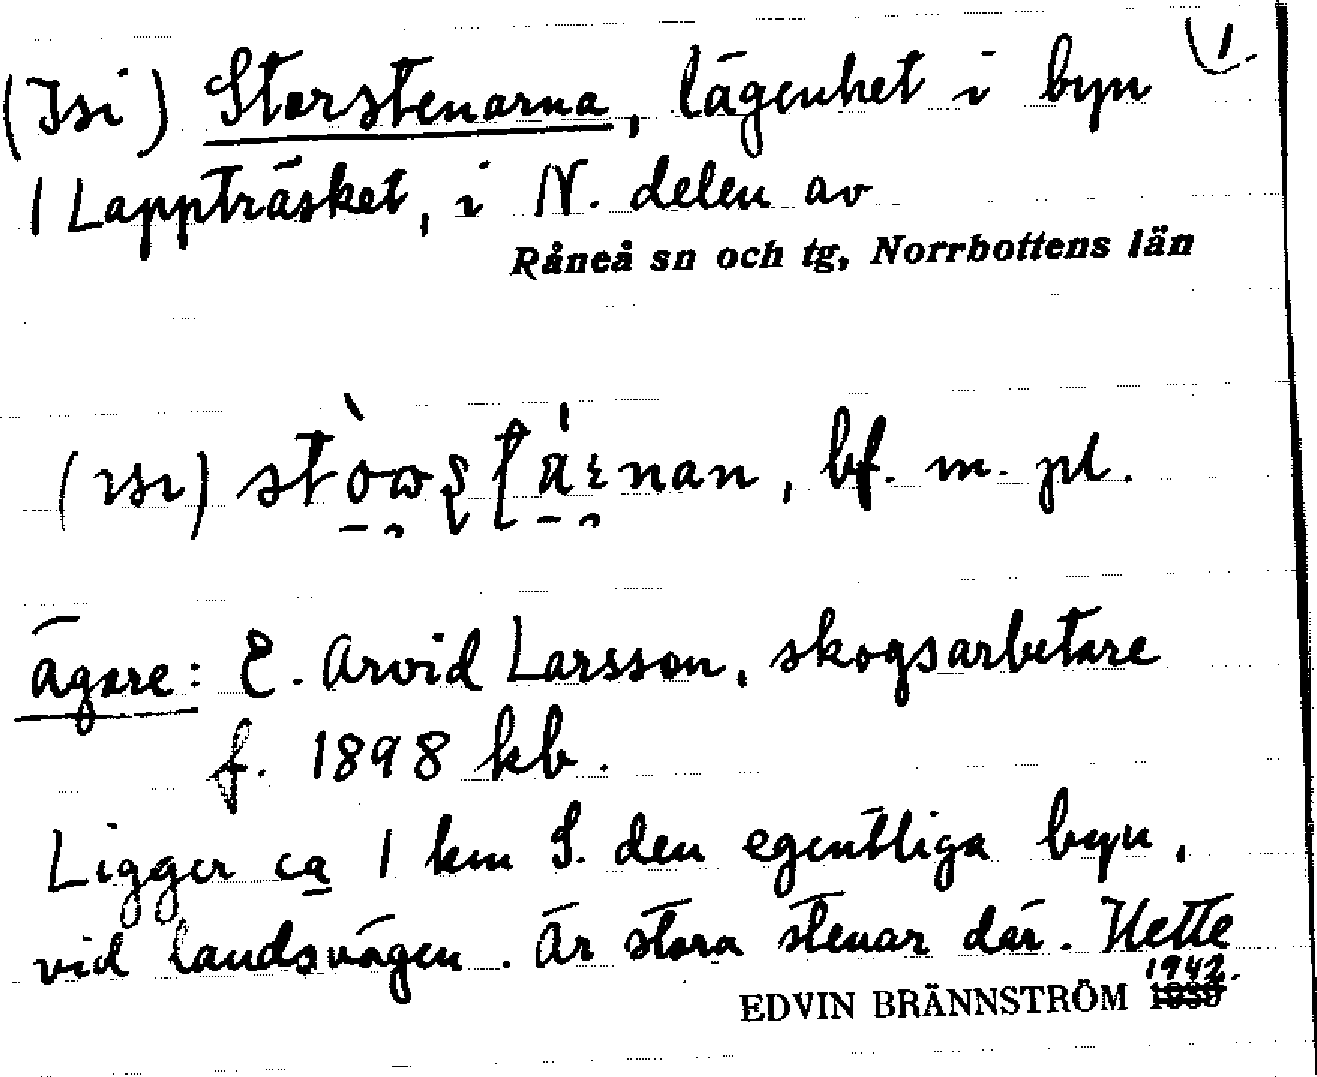 1
(Isi) Storstenarna, lägenhet i byn
1 Lappträsket, i N. delen av
Råneå sn och tg, Norrbottens län
bf. m. pl.
ägare: E. Arvid Larsson, skogsarbetare
f. 1898 kb.
Ligger ca 1 km S. den egentliga byn,
vid landsvägen. Är stora stenar där. Hette
1942.
EDVIN BRÄNNSTRÖM 1939